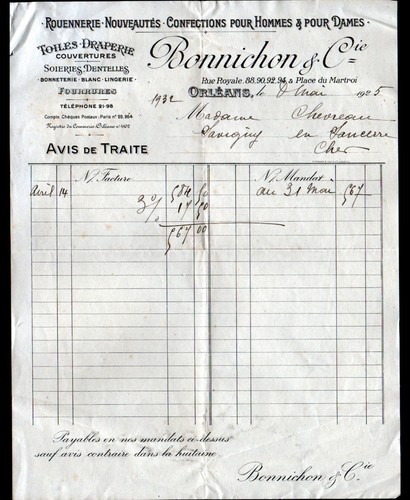 ROUENNERIE - NOUVEAUTÉS - CONFECTIONS POUR HOMMES & POUR DAMES
TOILES - DRAPERIE
COUVERTURES
SOIERIES DENTELLES
BONNETERIE - BLANC - LINGERIE
FOURRURES
TÉLÉPHONE 21-98
Compte Chèques Postaux: Paris nº 29.964
Registre du Commerce Orléans nº
AVIS DE TRAITE
Bonnichon & Cie
Rue Royale. 88.90.92.94, & Place du Martroi
ORLÉANS, le 8 Mai 1925
1932
Madame Chevreau
Savigny en Sancerre
Cher
N/ Facture N/ Mandat
Avril 14 584 50 au 31 Mai 567
3% 17 50
567 00
Payables en nos mandats ci-dessus
sauf avis contraire dans la huitaine
Bonnichon & Cie